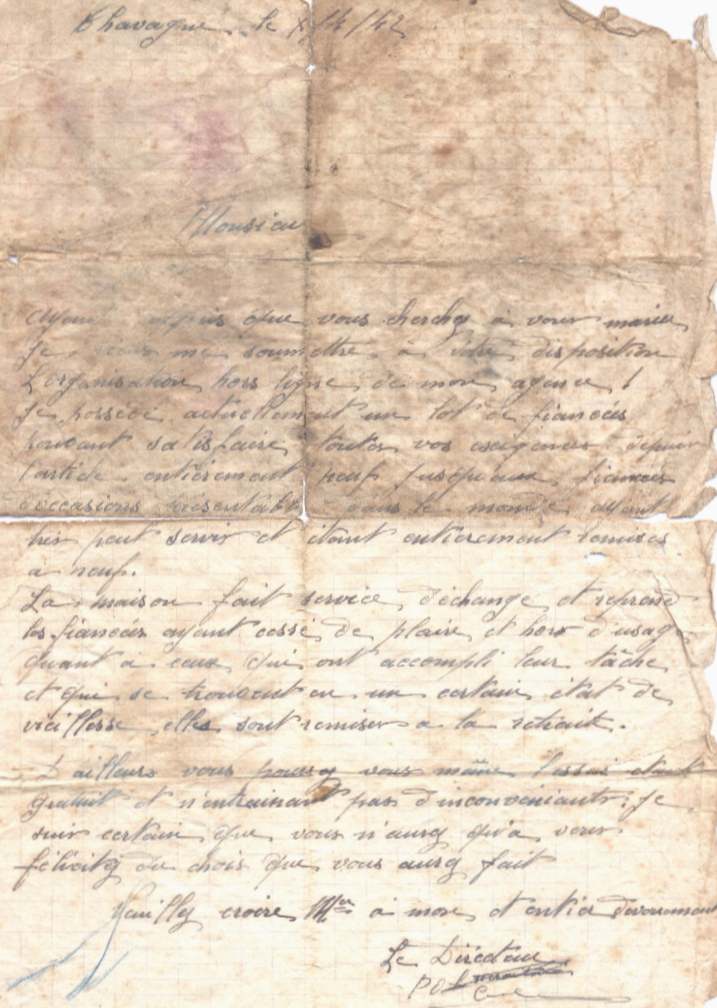 Chavagne le 14/42
Monsieur
Ayant apris que vous cherchez à vous marier
Je viens me soumettre à votre disposition
L'organisation hors ligne de mon agence !
Je possède actuellement un lot de fiancées
pouvant satisfaire toutes vos exigences depuis
l'article entièrement neuf jusqu'aux fiancées
d'occasions présentables dans le monde ayant
très peut servir et étant entièrement remises
a neuf.
La maison fait service d'échange et reprend
les fiancées ayant cessé de plaire et hors d'usage
quant à ceux qui ont accompli leur tâche
et qui se trouvent en un certain état de
vieillesse, elles sont remises a la retraite.
D'ailleurs vous pourrez vous même l'essai étant
gratuit et n'entrainant pas d'inconvéniants. Je
suis certain que vous n'aurez qu'a vous
féliciter du choix que vous aurez fait
Veuillez croire Mr à mon et entier dévouement
Le Directeur
P O